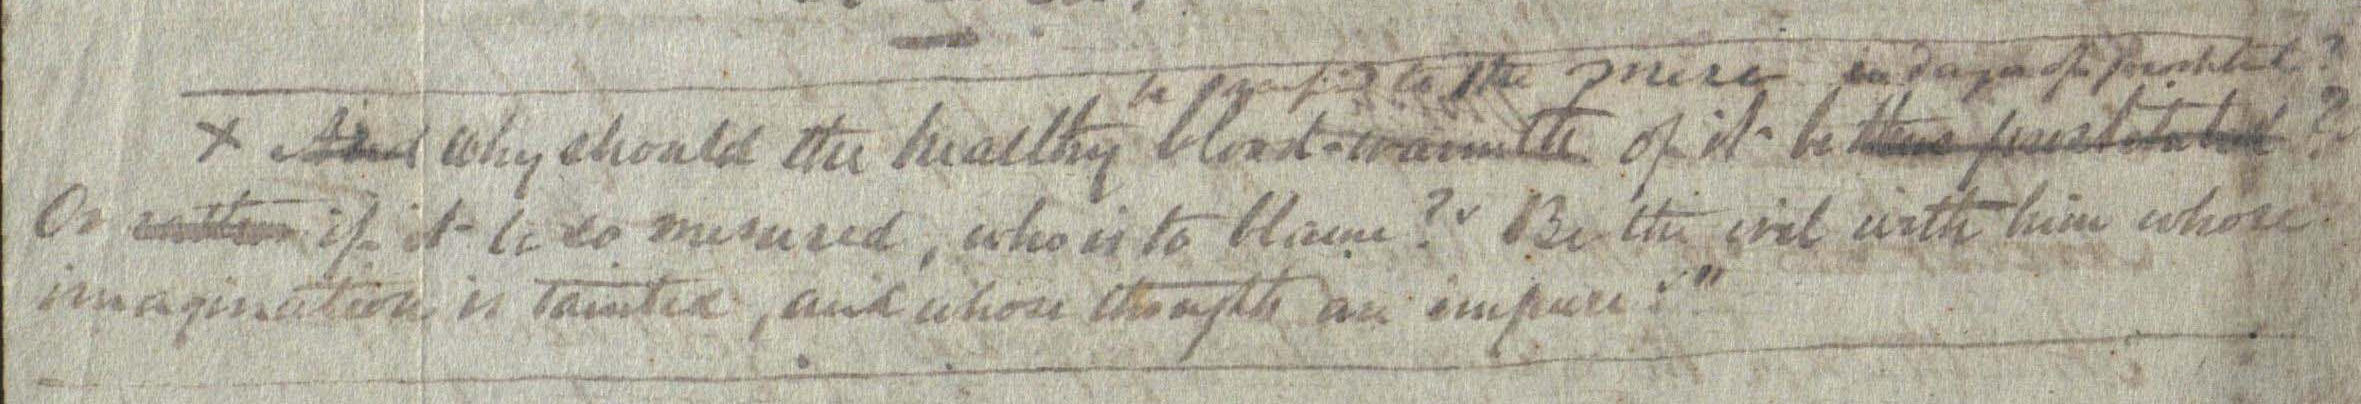 to the mere
x And why should the healthy blood-warmth of it be thus prostituted?
Or rather if it be so misused, who is to blame? Be the evil with him whose
imagination is tainted, and whose thoughts are impure."